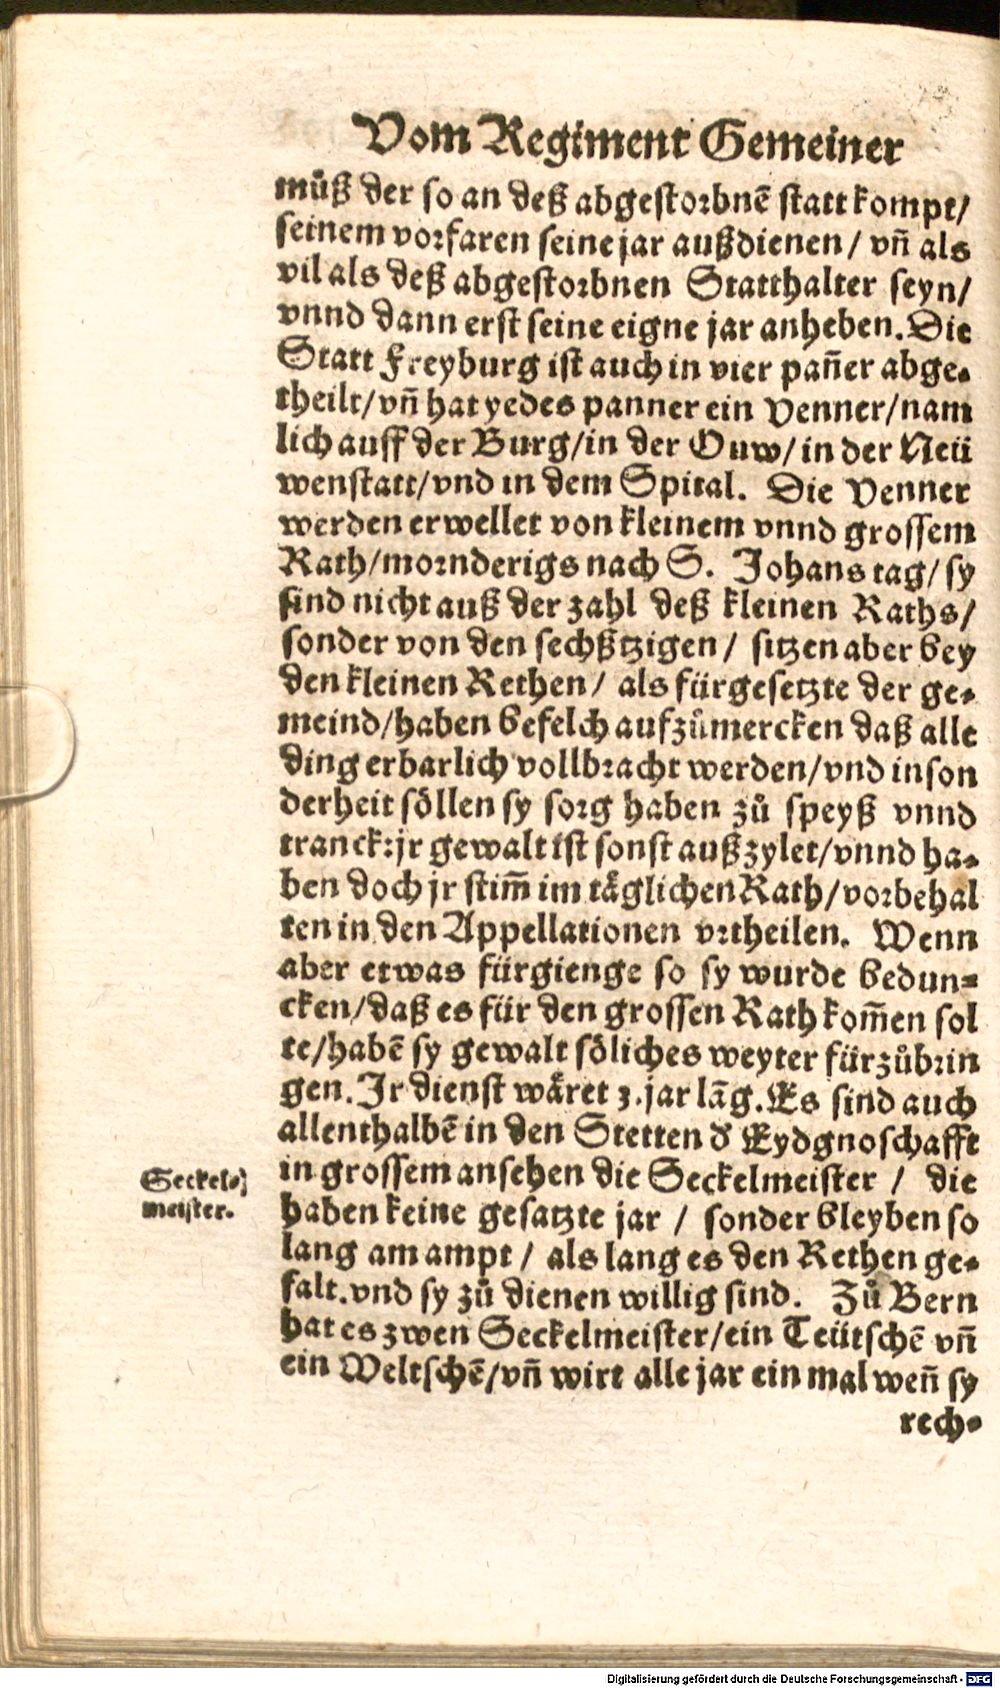 Vom Regiment Gemeiner
můß der so an deß abgestorbnẽ statt kompt/
seinem vorfaren seine jar außdienen / vñ als
vil als deß abgestorbnen Statthalter seyn/
vnnd dann erst seine eigne jar anheben. Die
Statt Freyburg ist auch in vier pañer abge-
theilt/vñ hat yedes panner ein Venner/nam
lich auff der Burg/in der Ouw/ in der Neü
wenstatt/vnd in dem Spital. Die Venner
werden erwellet von kleinem vnnd grossem
Rath/mornderigs nach S. Johans tag/ sy
sind nicht auß der zahl deß kleinen Raths/
sonder von den sechßtzigen / sitzen aber bey
den kleinen Rethen / als fürgesetzte der ge-
meind/haben befelch aufzůmercken daß alle
ding erbarlich vollbracht werden/vnd inson
derheit söllen sy sorg haben zů speyß vnnd
tranck:jr gewalt ist sonst außzylet/vnnd ha-
ben doch jr stim̃ im täglichen Rath/vorbehal
ten in den Appellationen vrtheilen. Wenn
aber etwas fürgienge so sy wurde bedun-
cken/daß es für den grossen Rath kom̃en sol
te/habẽ sy gewalt söliches weyter fürzůbrin
gen. Jr dienst wäret 3. jar lãg. Es sind auch
allenthalbẽ in den Stetten d̕ Eydgnoschafft
in grossem ansehen die Seckelmeister / die
haben keine gesatzte jar / sonder bleyben so
lang am ampt / als lang es den Rethen ge-
falt. vnd sy zů dienen willig sind. Zů Bern
hat es zwen Seckelmeister/ein Teütschẽ vñ
ein Weltschẽ/vñ wirt alle jar ein mal weñ sy
rech-
Seckel-
meister.
Digitalisierung gefördert durch die Deutsche Forschungsgemeinschaft - DFG